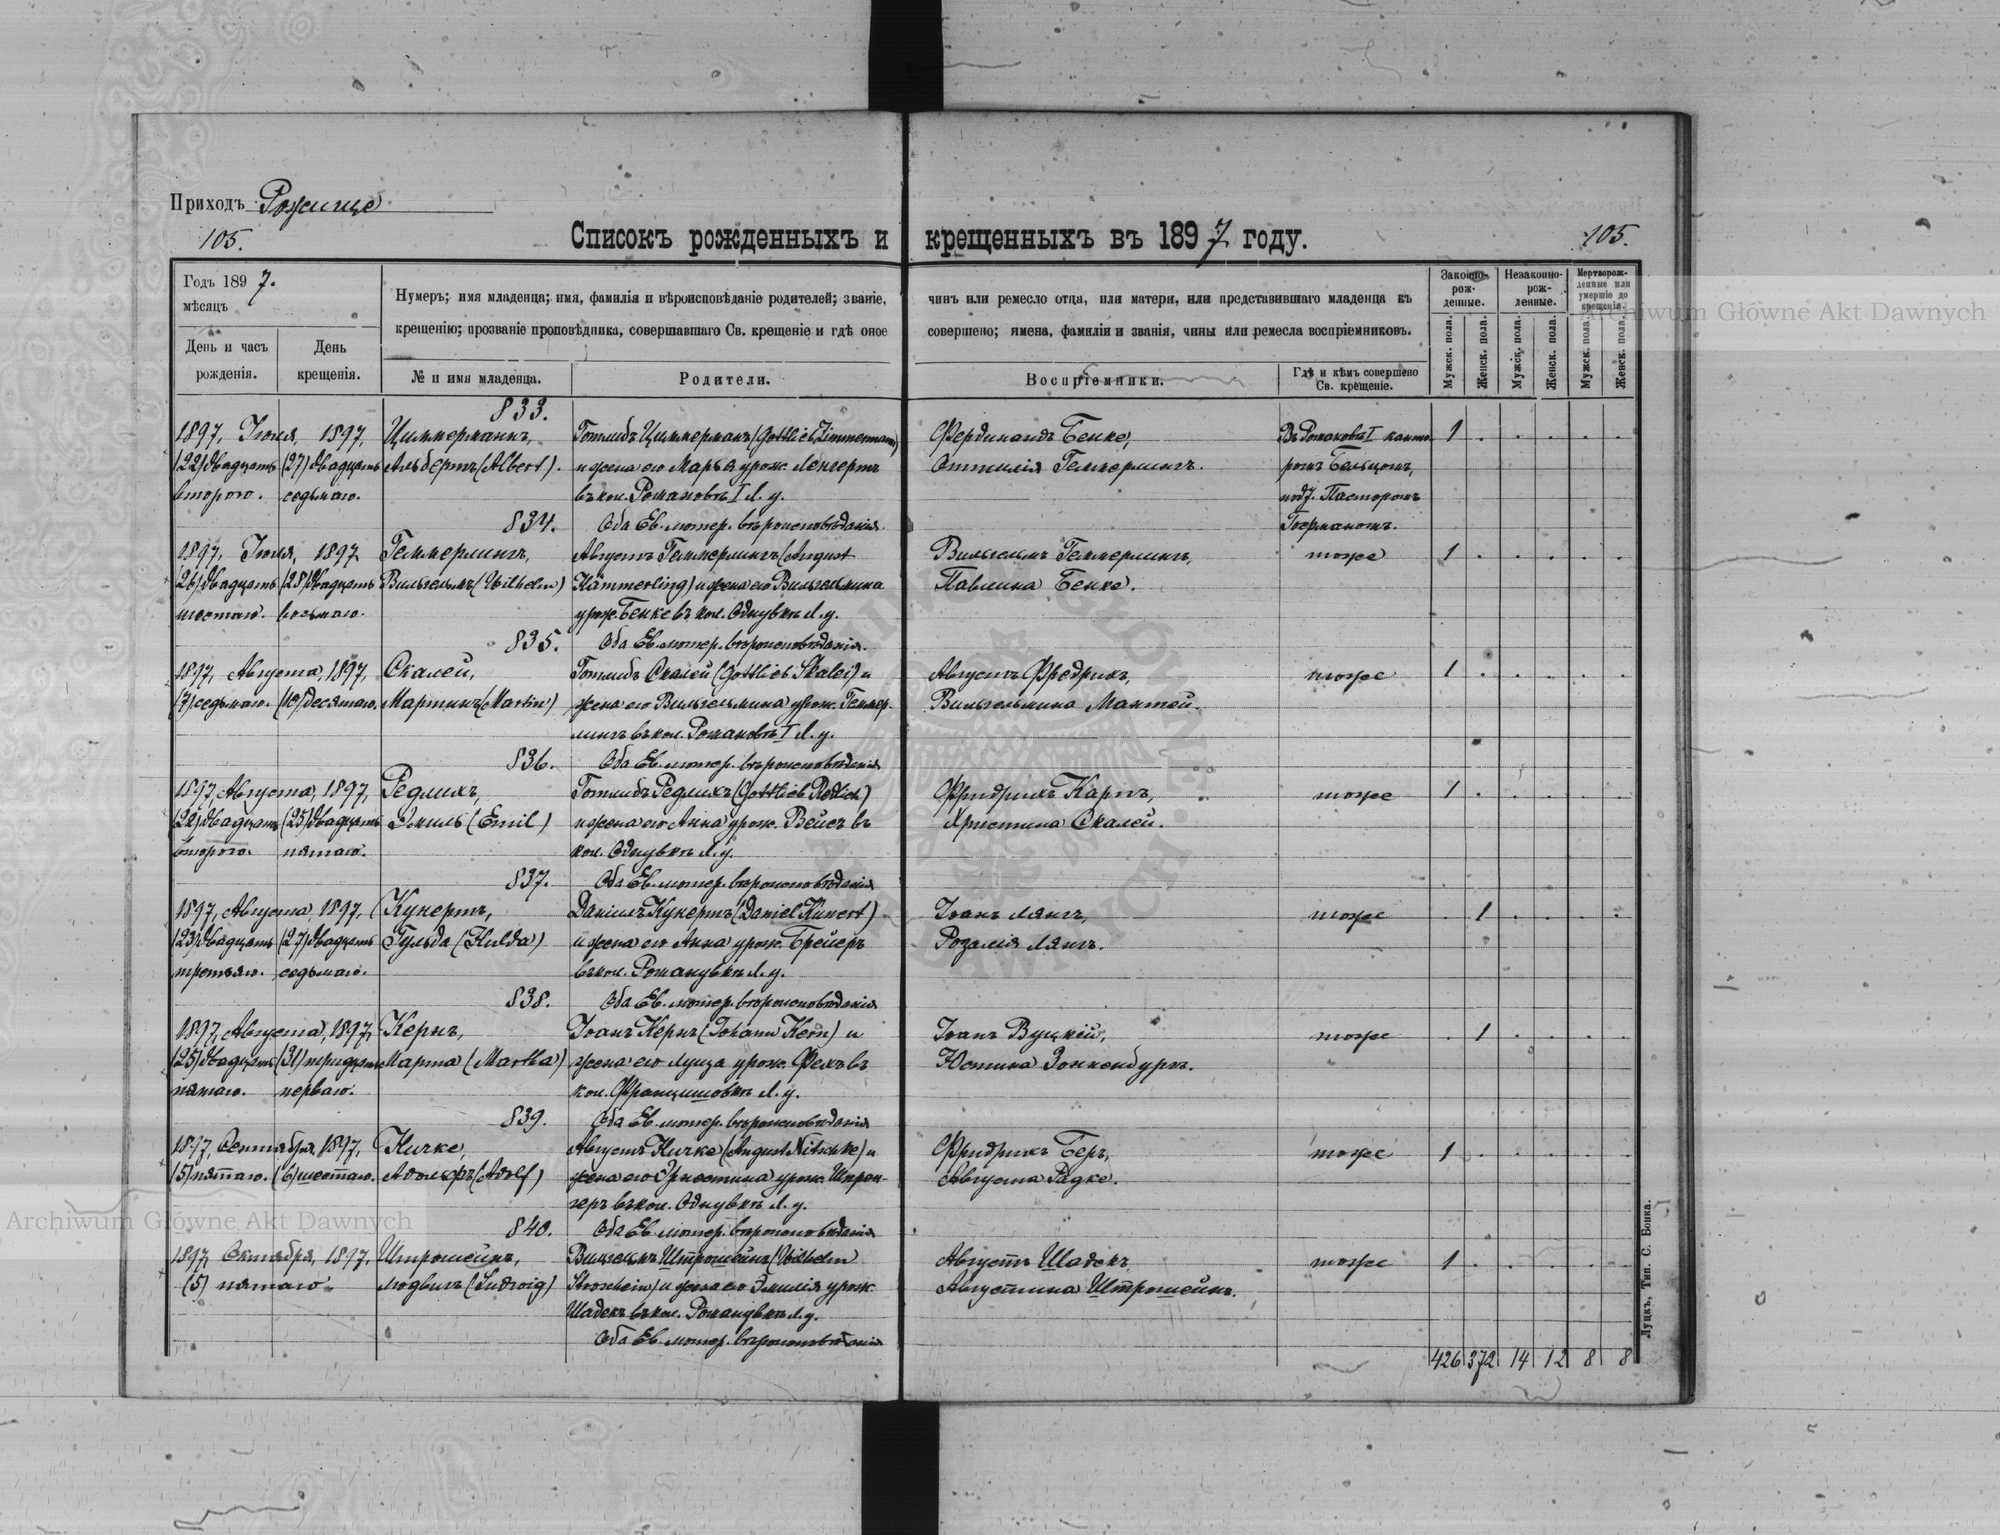 Приходъ Рожище
105.
Списокъ рожденныхъ и крещенныхъ въ 1897 году.
105.
Годъ 1897.
мѣсяцъ
День и часъ рожденія.
День крещенія.
Нумеръ; имя младенца; имя, фамилія и вѣроисповѣданіе родителей; званіе, чинъ или ремесло отца, или матери, или представившаго младенца къ
крещенію; прозваніе проповѣдника, совершавшаго Св. крещеніе и гдѣ оное совершено; имена, фамиліи и званія, чины или ремесла воспріемниковъ.
№ и имя младенца.
Родители.
Воспріемники.
Гдѣ и кѣмъ совершено Св. крещеніе.
Законно-рож-денные.
Незаконно-рож-денные.
Мертворож-денные или умершіе до крещенія.
Мужск. пола.
Женск. пола.
Мужск. пола.
Женск. пола.
Мужск. пола.
Женск. пола.
833.
1897, Іюля, 1897,
(22) двадцать второго.
(27) двадцать седьмого.
Циммерманъ,
Альбертъ (Albert).
Готлибъ Циммерманъ (Gottlieb Zimmermann)
и жена его Марья урож. Ленгертъ
въ кол. Романовъ I Л. у.
Оба Ев. лютер. вѣроисповѣданія.
Фердинандъ Бенке,
Оттилія Геммерлингъ.
Въ Романовъ I канто-
ромъ Бельцомъ,
подт. Пасторомъ
1 . . . . .
834.
1897, Іюля, 1897
(26) двадцать шестаго.
(28) двадцать восьмаго.
Геммерлингъ,
Вильгельмъ (Wilhelm)
Августъ Геммерлингъ (August
Kämmerling) и жена его Вильгельмина
урож. Бенке въ кол. Однувкѣ Л. у.
Оба Ев. лютер. вѣроисповѣданія.
Вильгельмъ Геммерлингъ,
Павлина Бенке.
тоже
1 . . . . .
835.
1897, Августа, 1897,
(7) седьмаго.
(10) десятаго.
Скалей,
Мартинъ (Martin)
Готлибъ Скалей (Gottlieb Skalei) и
жена его Вильгельмина урож. Геммер-
лингъ въ кол. Романовъ I Л. у.
Оба Ев. лютер. вѣроисповѣданія
Августъ Фредрихъ,
Вильгельмина Мантей.
тоже
1 . . . . .
836.
1897, Августа, 1897,
(22) двадцать второго.
(25) двадцать пятаго.
Редлихъ,
Эмиль (Emil)
Готлибъ Редлихъ (Gottlieb Redlich)
и жена его Анна урож. Вейсъ въ
кол. Однувкѣ Л. у.
Оба Ев. лютер. вѣроисповѣданія
Фридрихъ Каргъ,
Христина Скалей.
тоже
1 . . . . .
837.
1897, Августа, 1897,
(23) двадцать третьяго.
(27) двадцать седьмаго.
Кунертъ,
Гульда (Hulda)
Даніилъ Кунертъ (Daniel Kunert)
и жена его Анна урож. Брейеръ
въ кол. Романувкѣ Л. у.
Оба Ев. лютер. вѣроисповѣданія
Іоанъ Лянгъ,
Розалія Лянгъ.
тоже
. 1 . . . .
838.
1897, Августа, 1897,
(25) двадцать пятаго.
(31) тридцать перваго.
Кернъ,
Марта (Martha)
Іоанъ Кернъ (Johann Kern) и
жена его Луиза урож. Фехъ въ
кол. Францишовкѣ Л. у.
Оба Ев. лютер. вѣроисповѣданія
Іоанъ Вуцкій,
Юстина Зонненбургъ.
тоже
. 1 . . . .
839.
1897, Сентября, 1897,
(5) пятаго.
(6) шестаго.
Ничке,
Адольфъ (Adolf)
Августъ Ничке (August Nitschke) и
жена его Эрнестина урож. Шпрен-
геръ въ кол. Однувкѣ Л. у.
Оба Ев. лютер. вѣроисповѣданія
Фридрихъ Беръ,
Августа Радке.
тоже
1 . . . . .
840.
1897, Октября, 1897,
(5) пятаго
Штрошейнъ,
Людвигъ (Ludwig)
Вильгельмъ Штрошейнъ (Wilhelm
Stroschein) и жена его Эмилія урож.
Шадекъ въ кол. Романувкѣ Л. у.
Оба Ев. лютер. вѣроисповѣданія
Августъ Шадекъ,
Августина Штрошейнъ.
тоже
1 . . . . .
426 372 14 12 8 8
Луцкъ, Тип. С. Бонка.
Archiwum Główne Akt Dawnych
Archiwum Główne Akt Dawnych